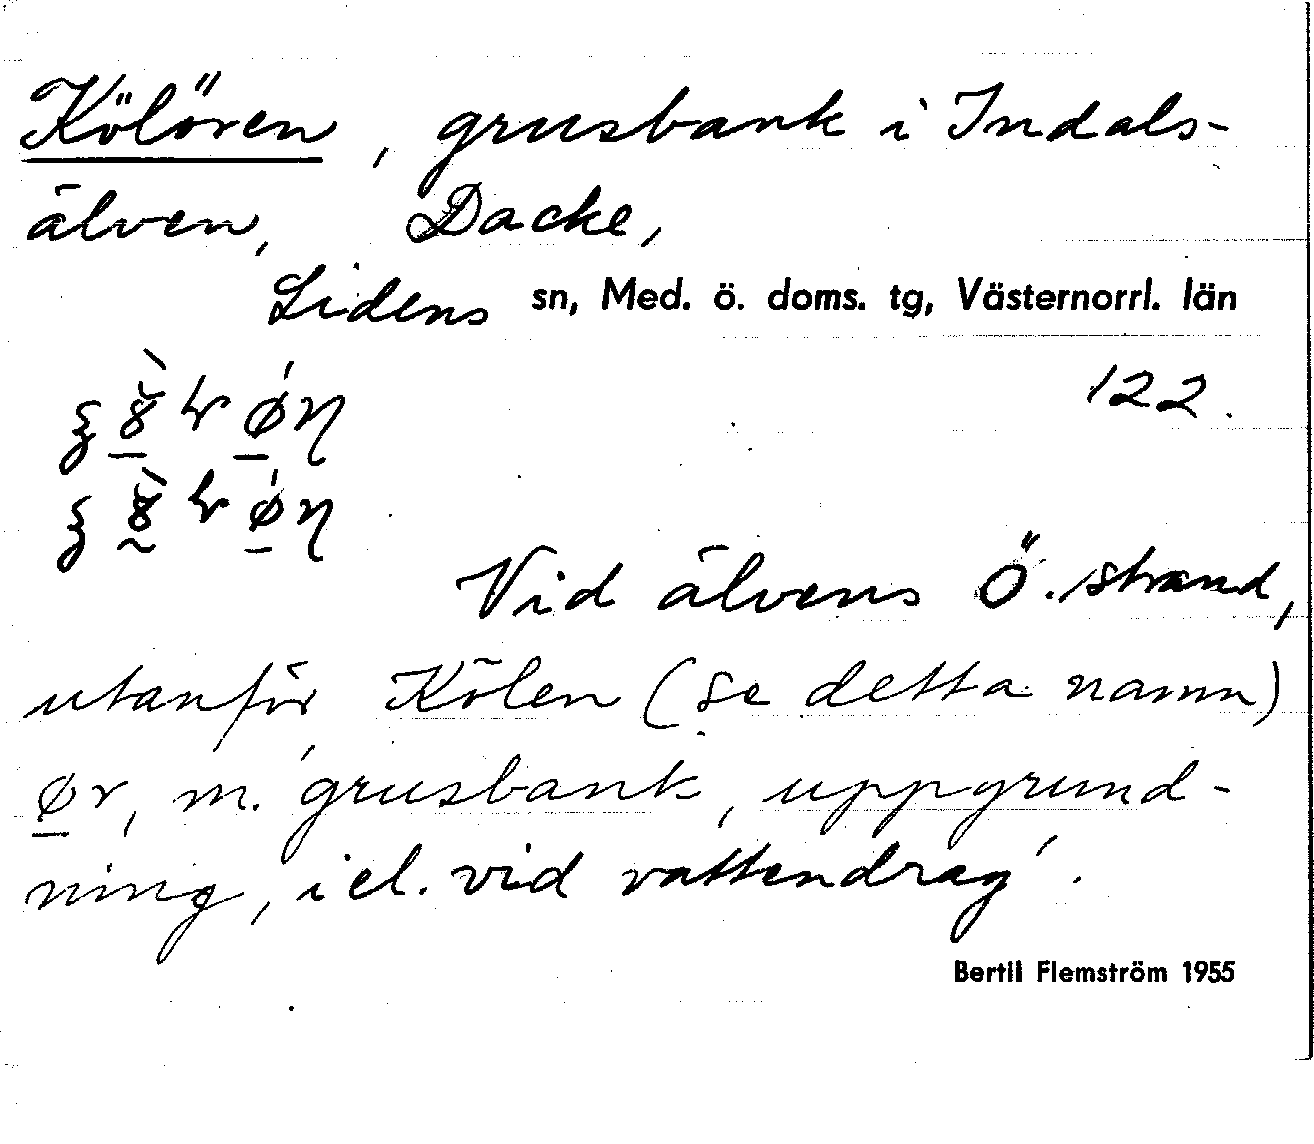 Kölören, grusbank i Indals-
älven, Dacke,
Lidens sn, Med. ö. doms. tg, Västernorrl. län
122.
Vid älvens Ö. strand,
utanför Kölen (se detta namn)
ør, m. 'grusbank, uppgrund-
ning, i el. vid vattendrag'.
Bertil Flemström 1955